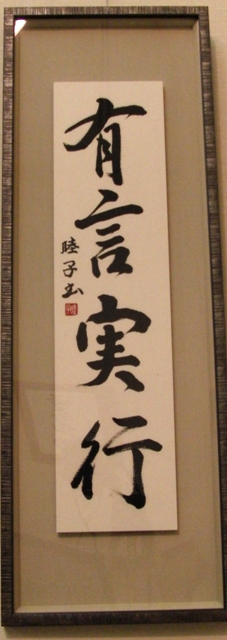 有言実行
睦子书